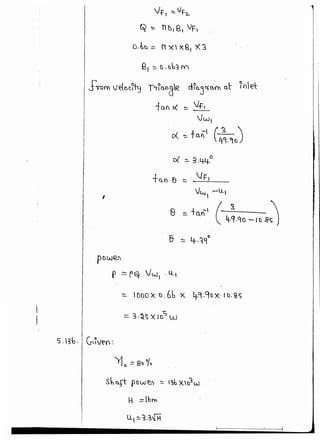 VF₁ = VF₂
Q = π D₁ B₁ VF₁
0.60 = π × 1 × B₁ × 3
B₁ = 0.063 m
From velocity Triangle diagram at inlet
tan α = VF₁ / Vω₁
α = tan⁻¹ (3 / 49.90)
α = 3.44°
tan θ = VF₁ / Vω₁ − u₁
θ = tan⁻¹ (3 / 49.90 − 10.85)
θ = 4.39°
power
P = ρQ Vω₁ . u₁
= 1000 × 0.6b × 49.90 × 10.85
= 3.25 × 10⁵ ω
5.13b. Given:
η₀ = 80%
Shaft power = 13b × 10³ ω
u₁ = 3.3√H